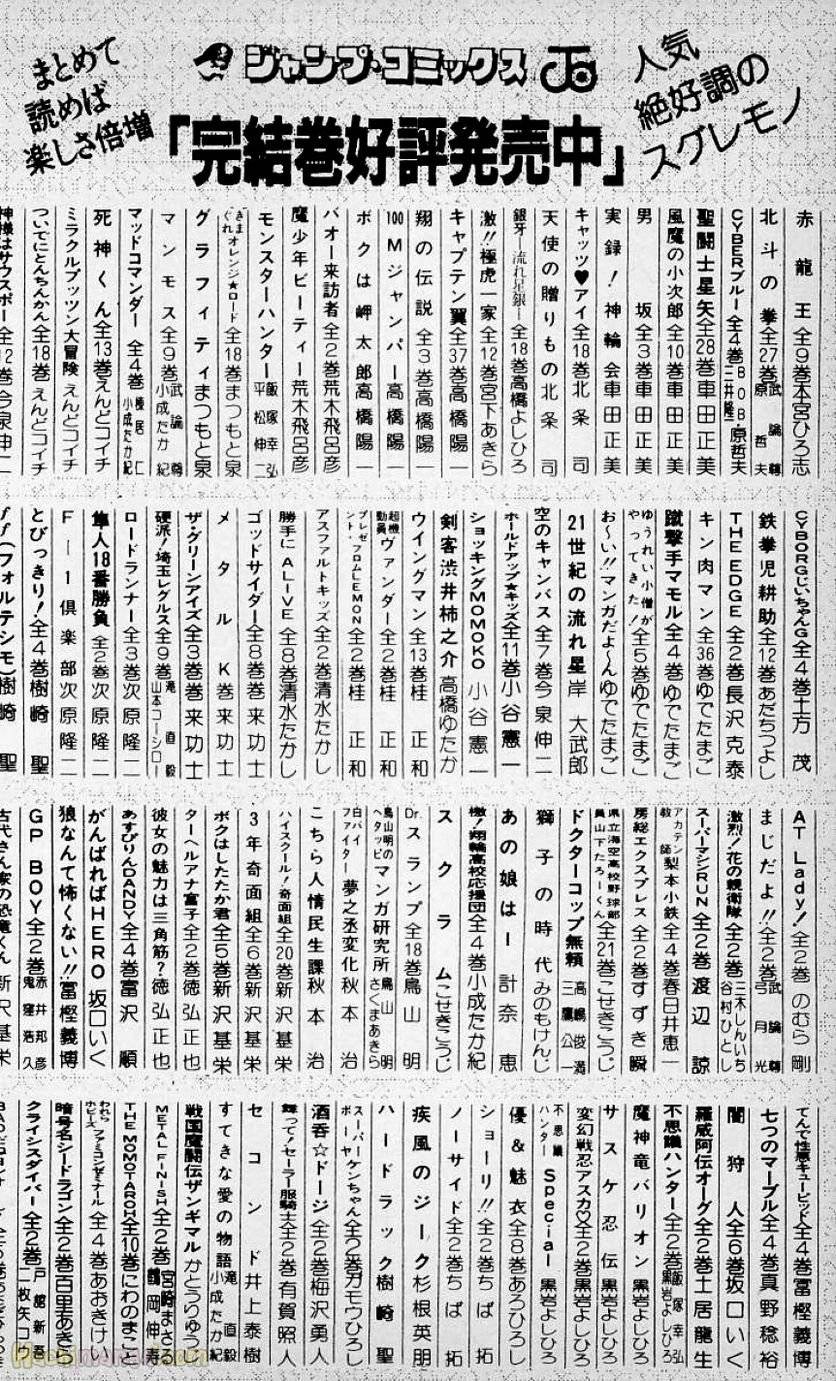 まとめて
読めば
楽しさ倍増
ジャンプ・コミックス
人気
絶好調の
スグレモノ
「完結巻好評発売中」
赤龍王 全9巻 本宮ひろ志
北斗の拳 全27巻 武論尊 原哲夫
CYBERブルー 全4巻 BOB・原哲夫 三井隆一
聖闘士星矢 全28巻 車田正美
風魔の小次郎 全10巻 車田正美
男坂 全3巻 車田正美
実録!神輪会 車田正美
キャッツ♥アイ 全18巻 北条司
天使の贈りもの 北条司
銀牙―流れ星 銀― 全18巻 高橋よしひろ
激!!極虎一家 全12巻 宮下あきら
キャプテン翼 全37巻 高橋陽一
翔の伝説 全3巻 高橋陽一
100Mジャンパー 高橋陽一
ボクは岬太郎 高橋陽一
バオー来訪者 全2巻 荒木飛呂彦
魔少年ビーティー 荒木飛呂彦
モンスターハンター 飯塚幸弘 平松伸二
きまぐれオレンジ★ロード 全18巻 まつもと泉
グラフィティ まつもと泉
マンモス 全9巻 武論尊 小成たか紀
マッドコマンダー 全4巻 榛居仁 小成たか紀
死神くん 全13巻 えんどコイチ
ミラクルプッツン大冒険 えんどコイチ
ついでにとんちんかん 全18巻 えんどコイチ
神様はサウスポー 全12巻 今泉伸二
CYBORGじいちゃんG 全4巻 土方茂
鉄拳児耕助 全12巻 あだちつよし
THE EDGE 全2巻 長沢克泰
キン肉マン 全36巻 ゆでたまご
蹴撃手マモル 全4巻 ゆでたまご
ゆうれい小僧がやってきた! 全5巻 ゆでたまご
お〜い!!マンガだよ〜ん ゆでたまご
21世紀の流れ星 岸大武郎
空のキャンバス 全7巻 今泉伸二
ホールドアップ★キッズ 全11巻 小谷憲一
ショッキングMOMOKO 小谷憲一
剣客渋井柿之介 高橋ゆたか
ウイングマン 全13巻 桂正和
超機動員ヴァンダー 全2巻 桂正和
プレゼント・フロムLEMON 全2巻 桂正和
アスファルトキッズ 全2巻 清水たかし
勝手にALIVE 全8巻 清水たかし
ゴッドサイダー 全8巻 巻来功士
メタルK 巻来功士
ザ・グリーンアイズ 全3巻 巻来功士
硬派!埼玉レグルス 全9巻 滝直毅 山本コーシロー
ロードランナー 全3巻 次原隆二
隼人18番勝負 全2巻 次原隆二
F-1倶楽部 次原隆二
とびっきり! 全4巻 樹崎聖
ff(フォルテシモ) 樹崎聖
AT Lady! 全2巻 のむら剛
まじだよ!! 全2巻 武論尊 弓月光
激烈!花の親衛隊 全2巻 三木しんいち 谷村ひとし
スーパーマシンRUN 全2巻 渡辺諒
アカテン教師梨本小鉄 全4巻 春日井恵一
房総エクスプレス 全2巻 すずき瞬
県立海空高校野球部員山下たろーくん 全21巻 こせきこうじ
ドクターコップ無頼 高嶋俊満 三鷹公一
獅子の時代 みのもけんじ
あの娘はー 計奈恵
檄!翔輪高校応援団 全4巻 小成たか紀
スクラム こせきこうじ
Dr.スランプ 全18巻 鳥山明
鳥山明のヘタッピマンガ研究所 鳥山明 さくまあきら
白バイファイター夢之丞変化 秋本治
こちら人情民生課 秋本治
ハイスクール!奇面組 全20巻 新沢基栄
3年奇面組 全6巻 新沢基栄
ボクはしたたか君 全5巻 新沢基栄
ターヘルアナ富子 全2巻 徳弘正也
彼女の魅力は三角筋? 徳弘正也
あすぴりんDANDY 全4巻 富沢順
がんばればHERO 坂口いく
狼なんて怖くない!! 富樫義博
GP BOY 全2巻 赤井邦彦 鬼窪浩久
古代さん家の恐竜くん 新沢基栄
てんで性悪キューピッド 全4巻 富樫義博
七つのマーブル 全4巻 真野稔裕
闇狩人 全6巻 坂口いく
羅威阿伝オーグ 全2巻 土居龍生
不思議ハンター 全2巻 飯塚幸弘 黒岩よしひろ
魔神竜バリオン 黒岩よしひろ
サスケ忍伝 黒岩よしひろ
変幻戦忍アスカ♡ 全2巻 黒岩よしひろ
不思議ハンターSpecial 黒岩よしひろ
優&魅衣 全8巻 あろひろし
ショーリ!! 全2巻 ちば拓
ノーサイド 全2巻 ちば拓
疾風のジーク 杉根英朋
ハードラック 樹崎聖
スーパーケンちゃんボーヤケンちゃん 全2巻 ガモウひろし
酒呑☆ドージ 全2巻 梅沢勇人
舞って!セーラー服騎士 全2巻 有賀照人
セコンド 井上泰樹
すてきな愛の物語 滝直毅 小成たか紀
戦国魔闘伝ザンギマル かとうりゅうじ
METAL FINISH 全2巻 宮崎まさる 鶴岡伸寿
THE MOMOTAROH 全10巻 にわのまこと
われらホビーズファミコンゼミナール 全4巻 あおきけい
暗号名シードラゴン 全2巻 百里あきら
クライシスダイバー 全2巻 戸舘新吾 一枚矢コウ